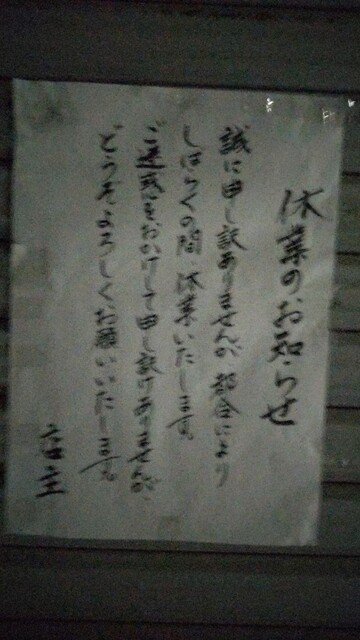 休業のお知らせ
誠に申し訳ありませんが、都合により
しばらくの間、休業いたします。
ご迷惑をおかけして申し訳けありませんが、
どうぞよろしくお願いいたします。
店主